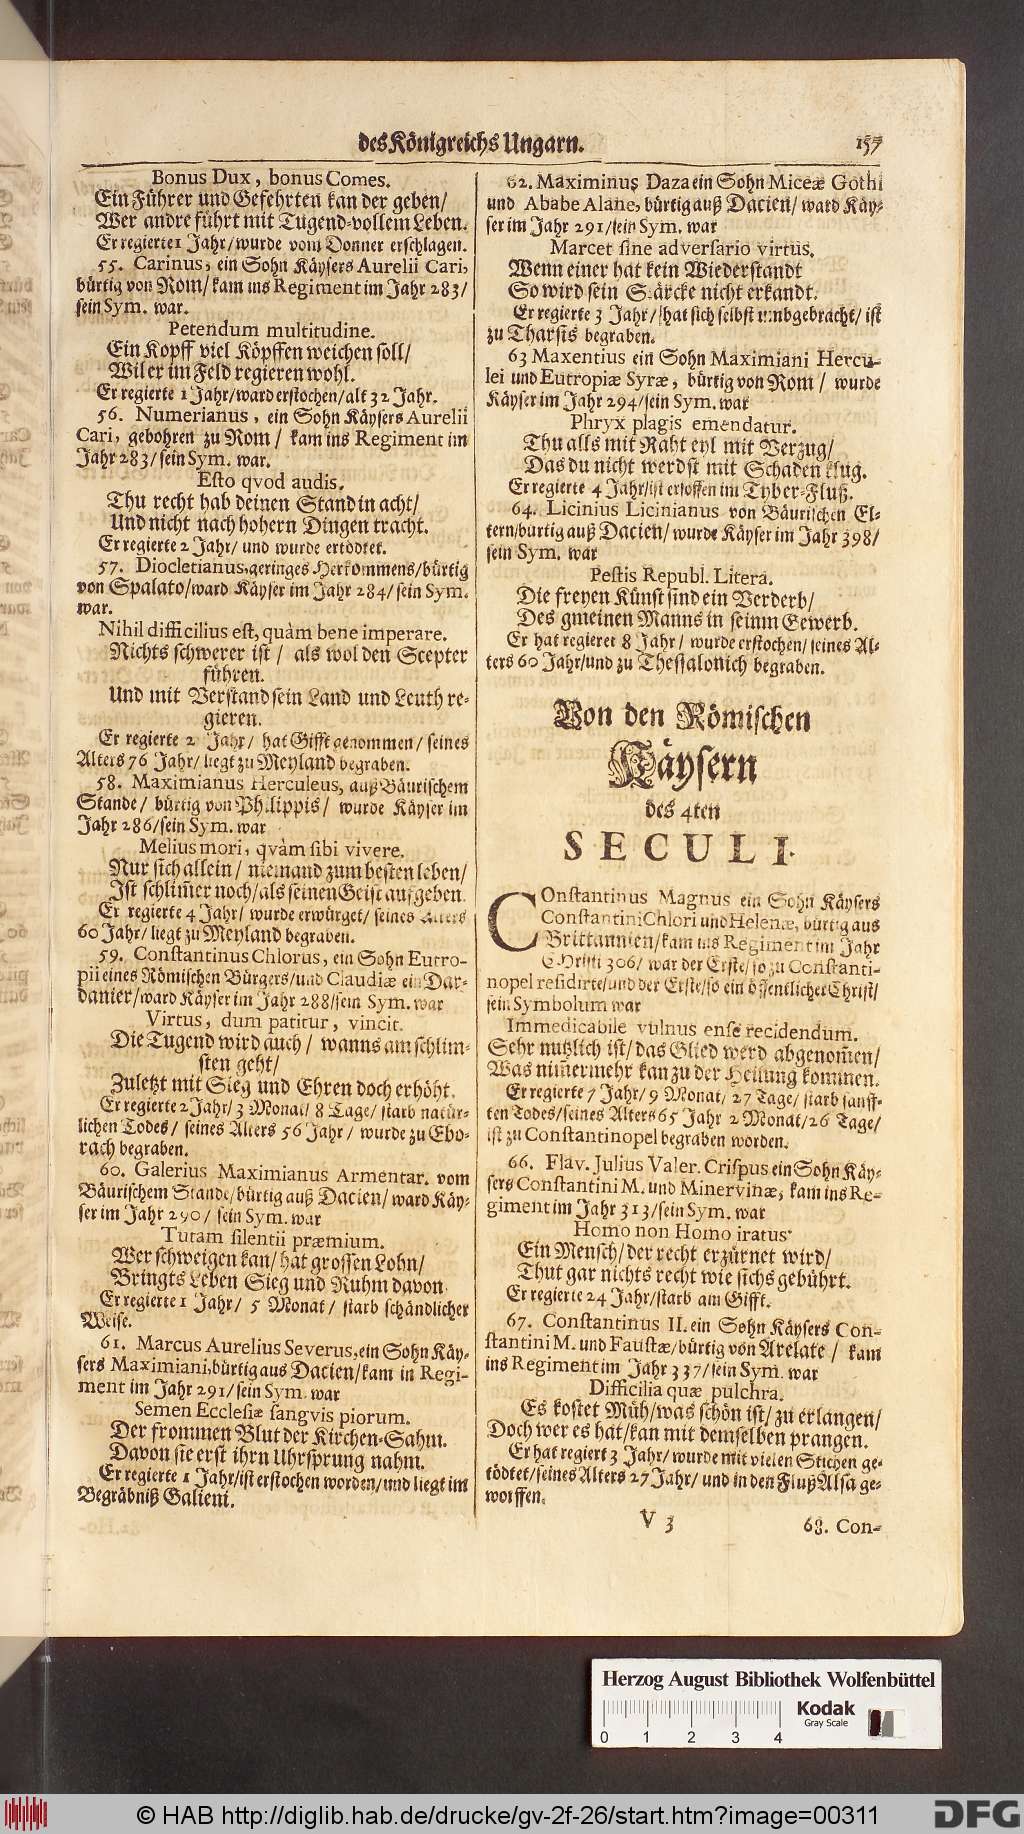 des Königreichs Ungarn.
157
Bonus Dux, bonus Comes.
Ein Führer und Gefehrten kan der geben/
Wer andre führt mit Tugend-vollem Leben.
Er regierte 1 Jahr/ wurde vom Donner erschlagen.
55. Carinus, ein Sohn Käysers Aurelii Cari,
bürtig von Rom/ kam ins Regiment im Jahr 283/
sein Sym. war.
Petendum multitudine.
Ein Kopff viel Köpffen weichen soll/
Wil er im Feld regieren wohl.
Er regierte 1 Jahr/ ward erstochen/ alt 32 Jahr.
56. Numerianus, ein Sohn Käysers Aurelii
Cari, gebohren zu Rom/ kam ins Regiment im
Jahr 283/ sein Sym. war.
Esto qvod audis.
Thu recht hab deinen Stand in acht/
Und nicht nach hohern Dingen tracht.
Er regierte 2 Jahr/ und wurde ertödtet.
57. Diocletianus, geringes Herkommens/ bürtig
von Spalato/ ward Käyser im Jahr 284/ sein Sym.
war.
Nihil difficilius est, quàm bene imperare.
Nichts schwerer ist/ als wol den Scepter
führen.
Und mit Verstand sein Land und Leuth re-
gieren.
Er regierte 2 Jahr/ hat Gifft genommen/ seines
Alters 76 Jahr/ liegt zu Meyland begraben.
58. Maximianus Herculeus, auß Bäurischem
Stande/ bürtig von Philippis/ wurde Käyser im
Jahr 286/ sein Sym. war
Melius mori, qvàm sibi vivere.
Nur sich allein/ niemand zum besten leben/
Ist schlim̃er noch/ als seinen Geist aufgeben.
Er regierte 4 Jahr/ wurde erwürget/ seines Alters
60 Jahr/ liegt zu Meyland begraben.
59. Constantinus Chlorus, ein Sohn Eutro-
pii eines Römischen Bürgers/ und Claudiæ ein Dar-
danier/ ward Käyser im Jahr 288/ sein Sym. war
Virtus, dum patitur, vincit.
Die Tugend wird auch/ wanns am schlim-
sten geht/
Zuletzt mit Sieg und Ehren doch erhöht.
Er regierte 2 Jahr/ 3 Monat/ 8 Tage/ starb natür-
lichen Todes/ seines Alters 56 Jahr/ wurde zu Ebo-
rach begraben.
60. Galerius Maximianus Armentar. vom
Bäurischem Stande/ bürtig auß Dacien/ ward Käy-
ser im Jahr 290/ sein Sym. war
Tutam silentii præmium.
Wer schweigen kan/ hat grossen Lohn/
Bringts Leben Sieg und Ruhm davon.
Er regierte 1 Jahr/ 5 Monat/ starb schändlicher
Weise.
61. Marcus Aurelius Severus, ein Sohn Käy-
sers Maximiani, bürtig aus Dacien/ kam in Regi-
ment im Jahr 291/ sein Sym. war
Semen Ecclesiæ sangvis piorum.
Der frommen Blut der Kirchen-Sahm.
Davon sie erst ihrn Uhrsprung nahm.
Er regierte 1 Jahr/ ist erstochen worden/ und liegt im
Begräbniß Galieni.
62. Maximinus Daza ein Sohn Miceæ Gothi
und Ababe Alane, bürtig auß Dacien/ ward Käy-
ser im Jahr 291/ sein Sym. war
Marcet sine adversario virtus.
Wenn einer hat kein Wiederstandt
So wird sein Stärcke nicht erkandt.
Er regierte 3 Jahr/ hat sich selbst umbgebracht/ ist
zu Tharsis begraben.
63 Maxentius ein Sohn Maximiani Hercu-
lei und Eutropiæ Syræ, bürtig von Rom/ wurde
Käyser im Jahr 294/ sein Sym. war
Phryx plagis emendatur.
Thu alls mit Raht eyl mit Verzug/
Das du nicht werdst mit Schaden klug.
Er regierte 4 Jahr/ ist ersoffen im Tyber-Fluß.
64. Licinius Licinianus von Bäurischen El-
tern/ bürtig auß Dacien/ wurde Käyser im Jahr 398/
sein Sym. war
Pestis Republ. Litera.
Die freyen Künst sind ein Verderb/
Des gmeinen Manns in seinm Gewerb.
Er hat regieret 8 Jahr/ wurde erstochen/ seines Al-
ters 60 Jahr/ und zu Thessalonich begraben.
Von den Römischen
Käysern
des 4ten
SECULI.
COnstantinus Magnus ein Sohn Käysers
Constantini Chlori und Helenæ, bürtig aus
Brittannien/ kam ins Regiment im Jahr
Christi 306/ war der Erste/ so zu Constanti-
nopel residirte/ und der Erste/ so ein öffentlicher Christ/
sein Symbolum war
Immedicabile vulnus ense recidendum.
Sehr nutzlich ist/ das Glied werd abgenom̃en/
Was nim̃ermehr kan zu der Heilung kommen.
Er regierte 7 Jahr/ 9 Monat/ 27 Tage/ starb sanff-
ten Todes/ seines Alters 65 Jahr 2 Monat/ 26 Tage/
ist zu Constantinopel begraben worden.
66. Flav. Julius Valer. Crispus ein Sohn Käy-
sers Constantini M. und Minervinæ, kam ins Re-
giment im Jahr 313/ sein Sym. war
Homo non Homo iratus.
Ein Mensch/ der recht erzürnet wird/
Thut gar nichts recht wie sichs gebührt.
Er regierte 24 Jahr/ starb am Gifft.
67. Constantinus II. ein Sohn Käysers Con-
stantini M. und Faustæ/ bürtig von Arelate/ kam
ins Regiment im Jahr 337/ sein Sym. war
Difficilia quæ pulchra.
Es kostet Müh/ was schön ist/ zu erlangen/
Doch wer es hat/ kan mit demselben prangen.
Er hat regiert 3 Jahr/ wurde mit vielen Stichen ge-
tödtet/ seines Alters 27 Jahr/ und in den Fluß Alsa ge-
worffen.
V 3
68. Con-
Herzog August Bibliothek Wolfenbüttel
Kodak
Gray Scale
0 1 2 3 4
© HAB http://diglib.hab.de/drucke/gv-2f-26/start.htm?image=00311
DFG